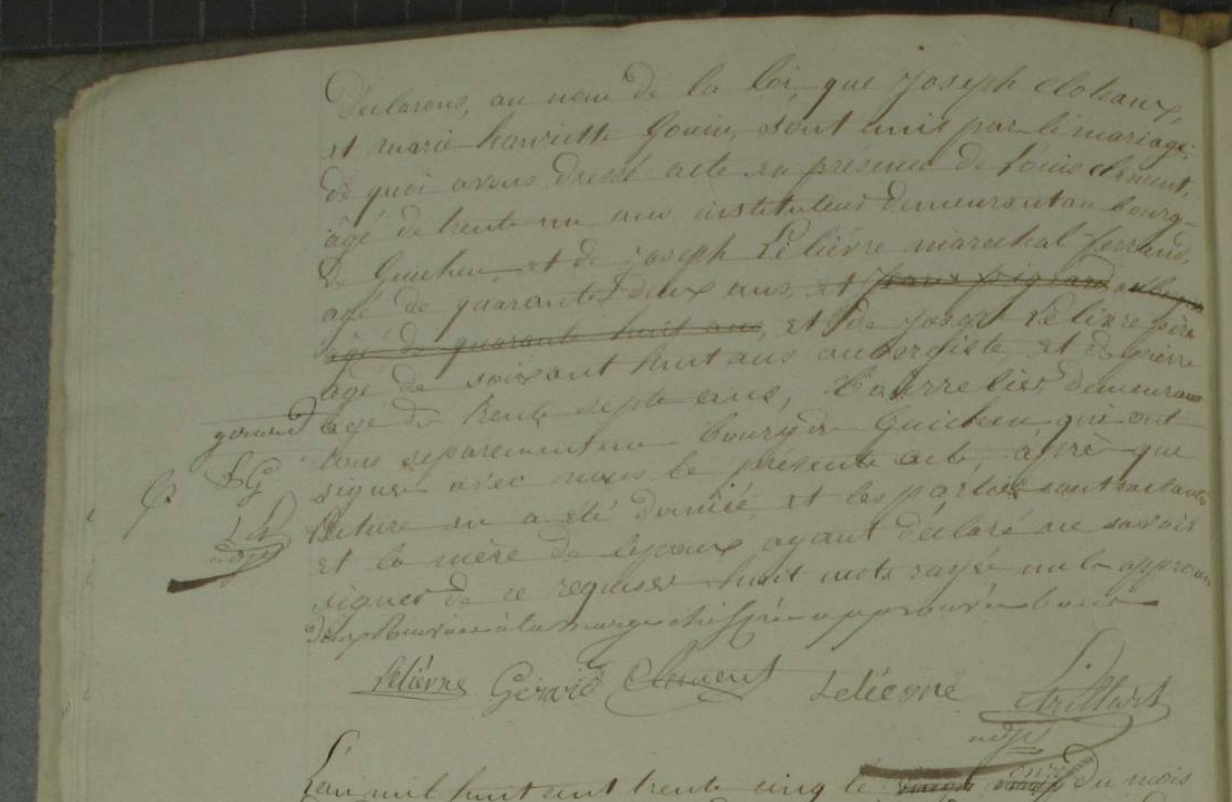 Declarons, au nom de la loi, que Joseph cloleaux,
et marie hanriette Gouin, sont unis par le mariage.
de quoi avons dressé acte en présence de Louis clement,
âgé de trente un ans instituteur demeurant au bourg
de Guichen et de Joseph Lelièvre marechal ferrand,
agé de quarante deux ans, et
agé de quarante huit ans, et de Joseph Lelievre père
agé de soixant huit ans aubergiste et de pierre
gerard âgé de trente septe ans, bourrelier demeurant
tous separement au bourg de Guichen qui ont
signer avec nous le present acte, après que
LG
lecture en a été donnée, et les parties contractantes
et la mère de l'epoux ayant déclaré ne savoir
signer de ce requises huit mots rayés nuls approuvés
à la marge chiffrée approuvée bonne
Lelièvre Gérard Clement Lelievre
adjt
L'an mil huit cent trente cinq le onze du mois